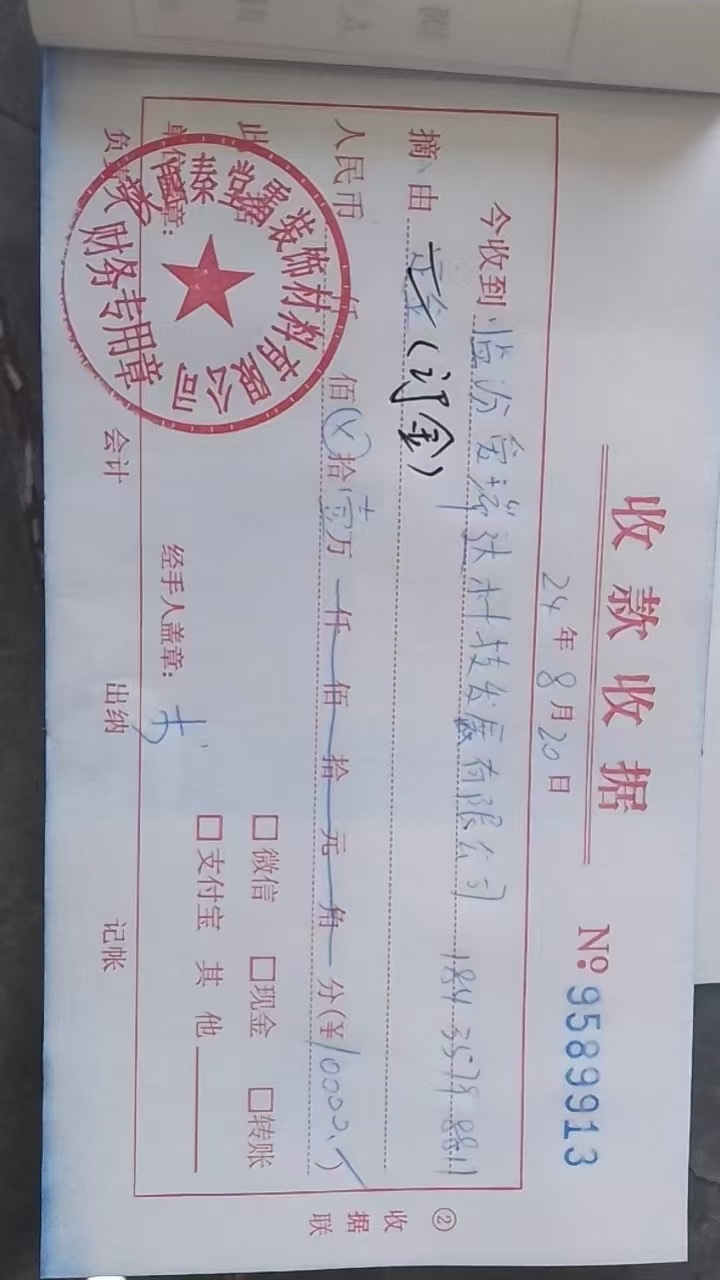 收款收据
№ 9589913
24年8月20日
今收到 临汾 科技发展有限公司 184 3578 8811
摘由 定金(订金)
人民币 仟 佰 拾 壹万 仟 佰 拾 元 角 分(¥10000.)
此
单位盖章:
装饰材料有限公司
财务专用章
经手人盖章:
□微信 □现金 □转账
□支付宝 其他
会计 出纳 记帐
②
收据联